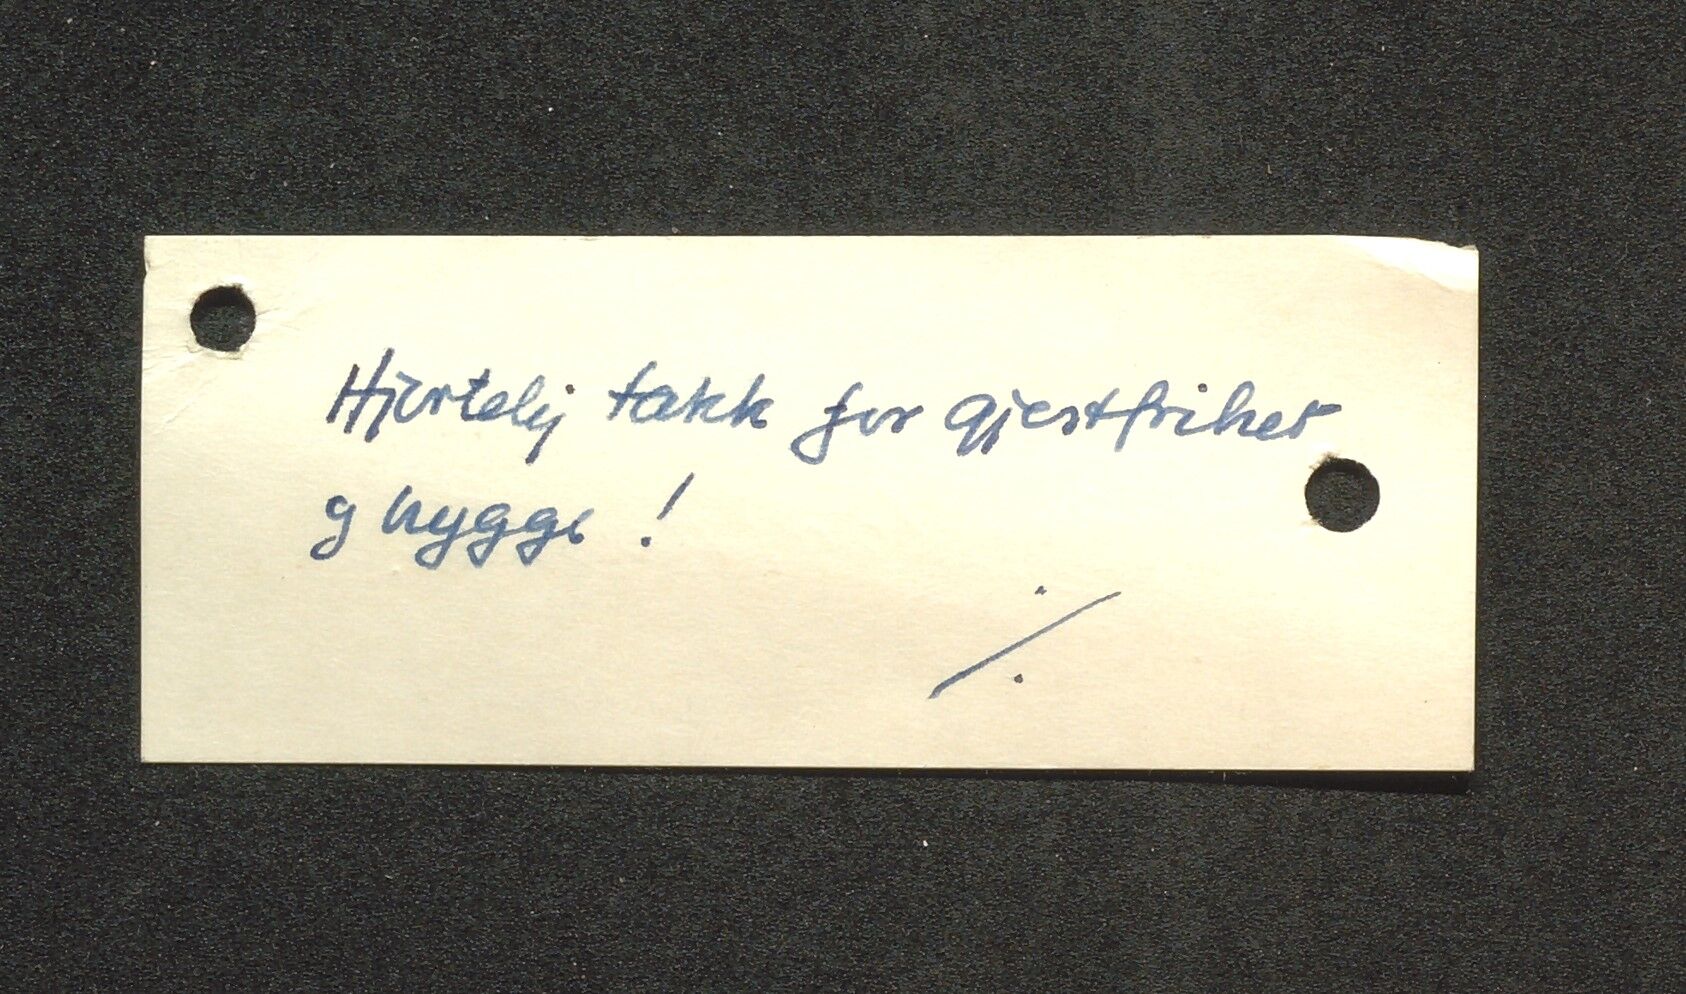 Hjertelig takk for gjestfrihet
og hygge!
./.